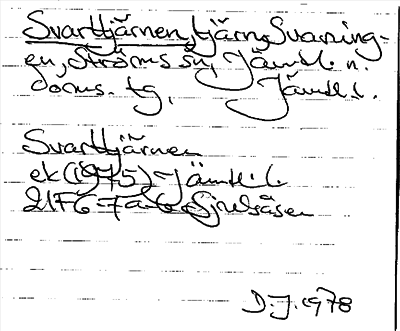 Svarttjärnen, tjärn, Svaning-
en, Ströms sn, Jämtl. n.
doms. tg, Jämtl. l.
Svarttjärnen
ek (1975) Jämtl. l.
21F6
D.J. 1978